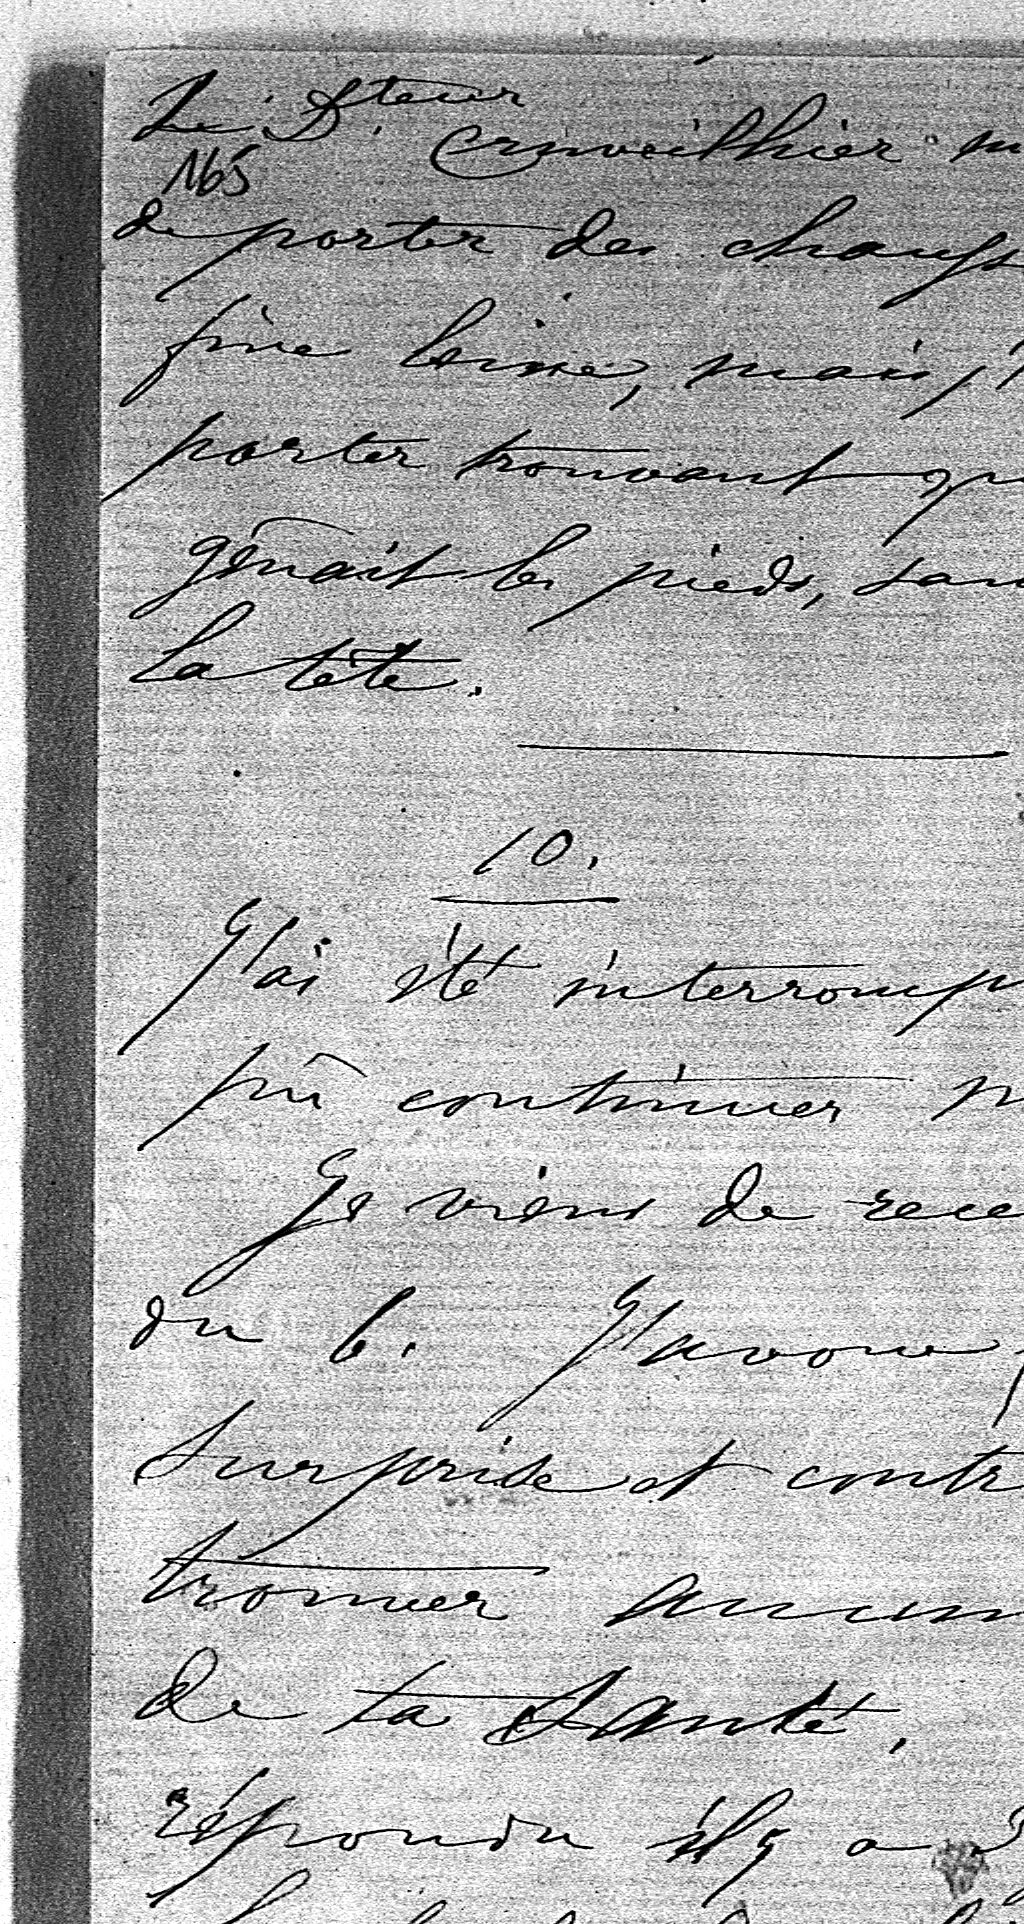 Le Dteur Cruveilhier m
165
de porter des chauss
fine laine, mais j'
porter trouvant qu
gênait les pieds, sans
la tête.
10.
J'ai été interromp
pû continuer m
Je viens de rece
du 6. J'avoue
surprise et contr
trouver aucun
de ta santé.
répondu il y a 3